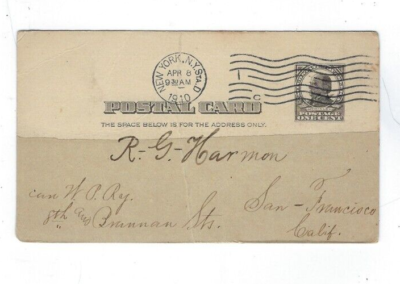 NEW YORK, N.Y. STA. D
APR 8
9 30 AM
1910
1 C
POSTAL CARD
THE SPACE BELOW IS FOR THE ADDRESS ONLY.
POSTAGE
ONE CENT
R.-G-Harmon
can W. P. Ry.
8th and Brannan Sts.
San-Francisco
Calif.